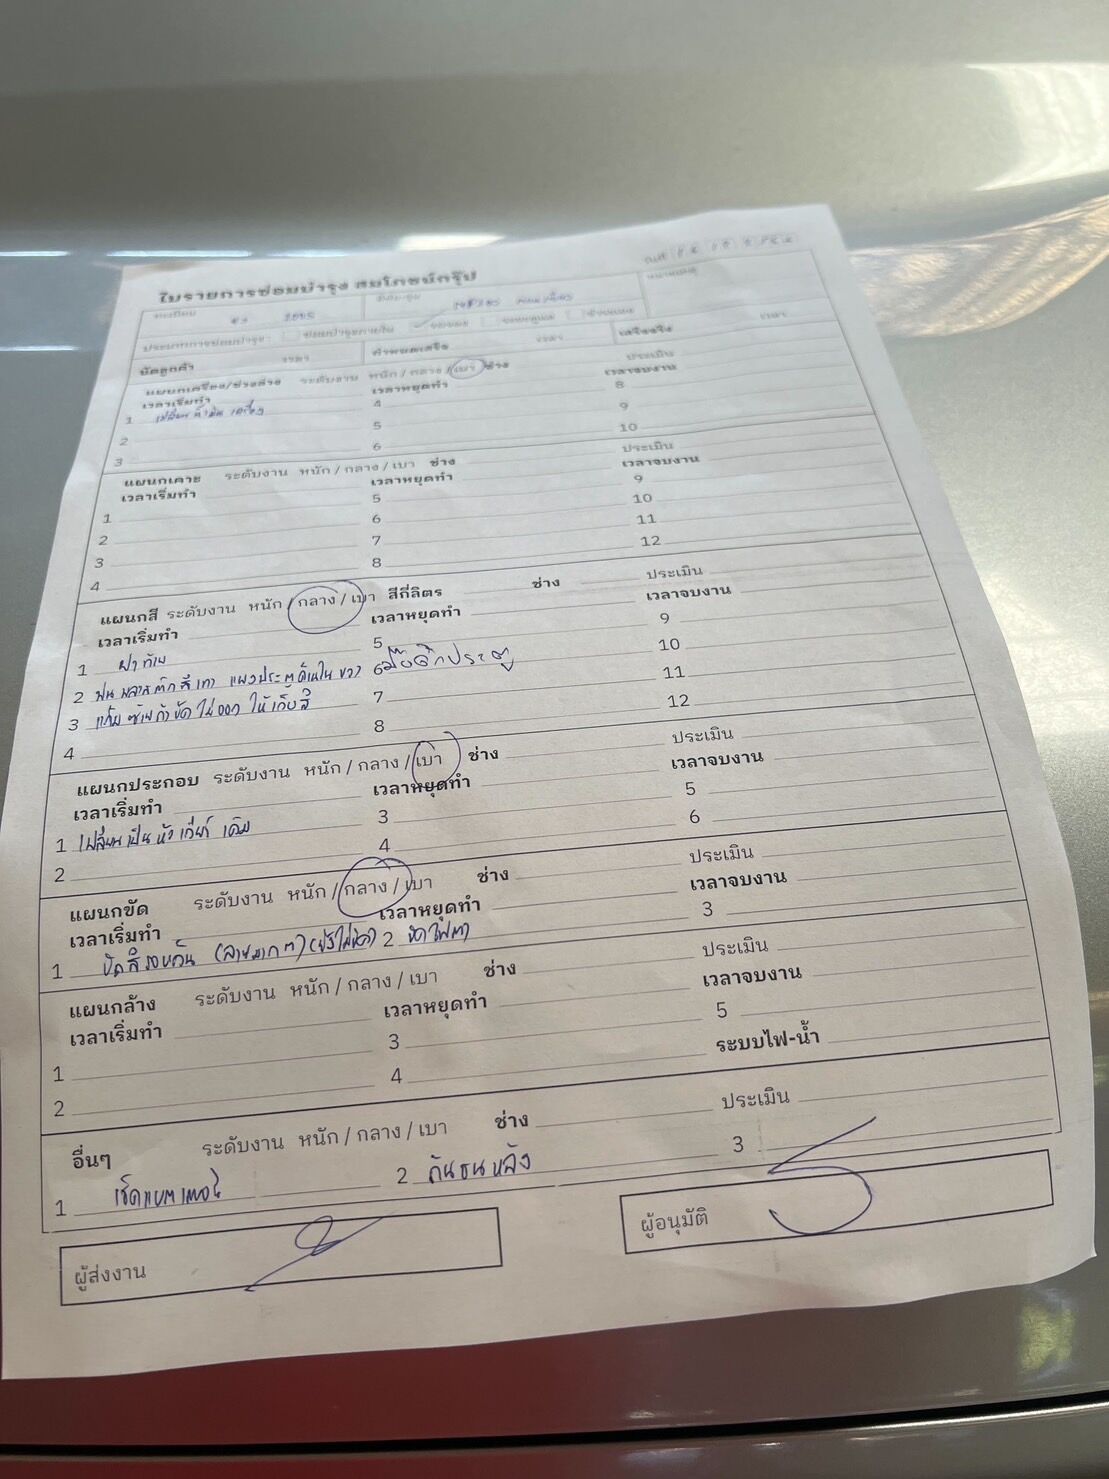 ใบรายการซ่อมบำรุง สมโภชน์กรุ๊ป
วันที่
ทะเบียน 2005 ยี่ห้อ-รุ่น หมายเหตุ
ประเภทการซ่อมบำรุง: ซ่อมบำรุงภายใน
นัดลูกค้า เวลา กำหนดเสร็จ เวลา เสร็จจริง เวลา
แผนกเครื่อง/ช่วงล่าง ระดับงาน หนัก / กลาง / เบา ช่าง
เวลาเริ่มทำ เวลาหยุดทำ เวลาจบงาน
1 เปลี่ยนน้ำมันเครื่อง 4 8
2 5 9
3 6 10
แผนกเคาะ ระดับงาน หนัก / กลาง / เบา ช่าง ประเมิน
เวลาเริ่มทำ เวลาหยุดทำ เวลาจบงาน
1 5 9
2 6 10
3 7 11
4 8 12
แผนกสี ระดับงาน หนัก / กลาง / เบา สีกี่ลิตร ช่าง ประเมิน
เวลาเริ่มทำ เวลาหยุดทำ เวลาจบงาน
1 ฝาท้าย 5 9
2 พ่นพลาสติกสีเทา แผงประตูด้านใน ขวา 6 10
3 ให้เก็บสี 7 11
4 8 12
แผนกประกอบ ระดับงาน หนัก / กลาง / เบา ช่าง ประเมิน
เวลาเริ่มทำ เวลาหยุดทำ เวลาจบงาน
1 เปลี่ยนเป็นหัวเกียร์เดิม 3 5
2 4 6
แผนกขัด ระดับงาน หนัก / กลาง / เบา ช่าง ประเมิน
เวลาเริ่มทำ เวลาหยุดทำ เวลาจบงาน
1 ขัดสีรอบคัน (ลายมากๆ) (ยังไม่ขัด) 2 ขัดไฟตา 3
แผนกล้าง ระดับงาน หนัก / กลาง / เบา ช่าง ประเมิน
เวลาเริ่มทำ เวลาหยุดทำ เวลาจบงาน
1 3 5
2 4 ระบบไฟ-น้ำ
อื่นๆ ระดับงาน หนัก / กลาง / เบา ช่าง ประเมิน
1 เช็คแบตเตอรี่ 2 กันชนหลัง 3
ผู้ส่งงาน ผู้อนุมัติ